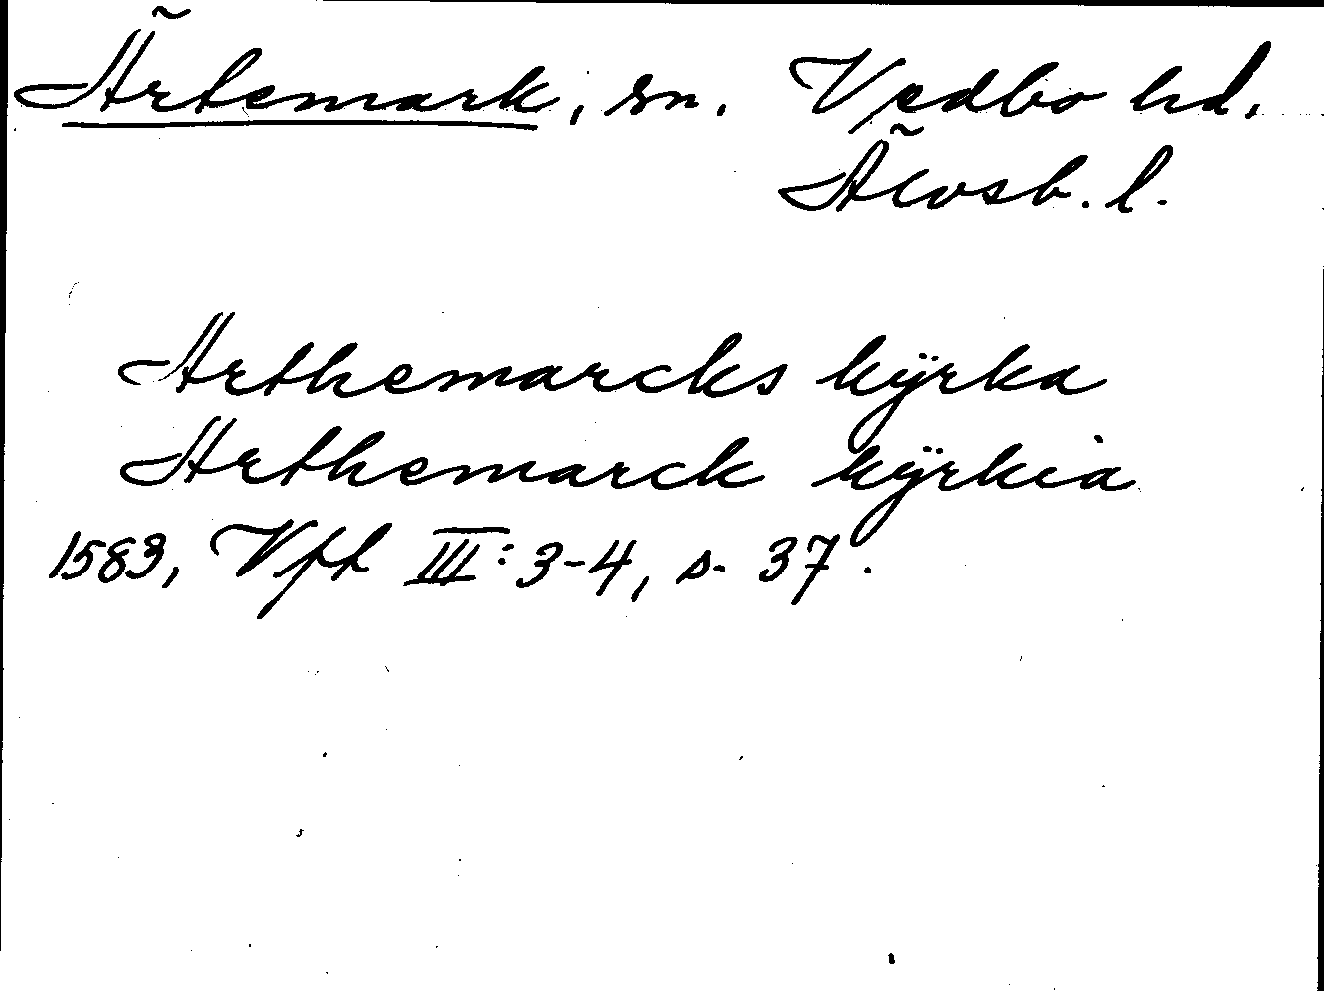 Ärtemark, sn. Vedbo hd.
Älvsb. l.
Arthemarcks kÿrka
Arthemarck kÿrkia
1583, Vfl III:3-4, s. 37.